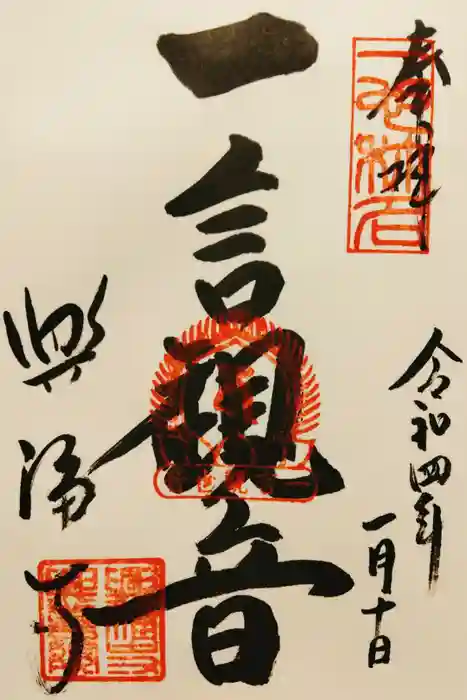 奉拝
令和四年
一月十日
一言観音
興福寺